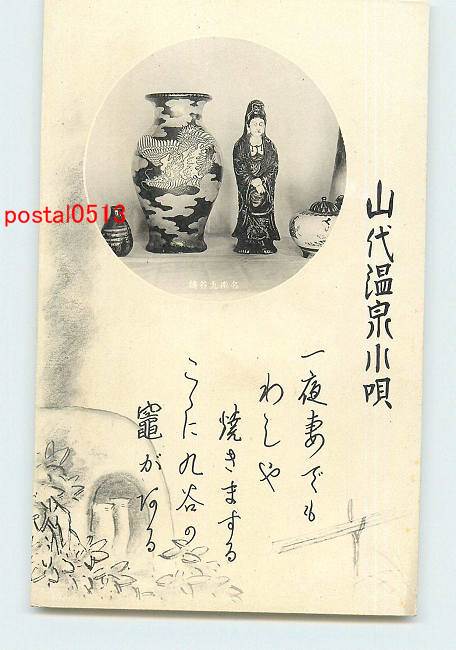 山代温泉小唄
一夜妻でも
わしや
焼きまする
こゝに九谷の
竈がある
名産九谷焼
postal0513